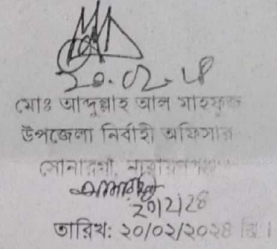 20.02.24
মোঃ আব্দুল্লাহ আল মাহফুজ
উপজেলা নির্বাহী অফিসার
সোনারগাঁ, নারায়ণগঞ্জ
20/2/24
তারিখ: ২০/০২/২০২৪